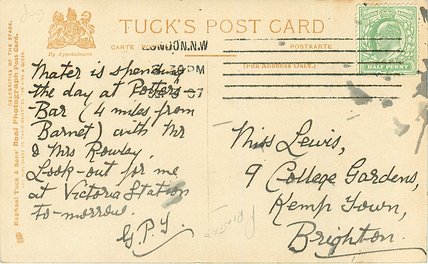 TUCK'S POST CARD
CARTE POSTALE
By Appointment
(FOR ADDRESS ONLY.)
LONDON.N.W
30PM
07
POSTAGE
HALF PENNY
CELEBRITIES OF THE STAGE.
Raphael Tuck & Sons' Real Photograph Post Card.
Mater is spending
the day at Potters-
Bar (4 miles from
Barnet) with Mr
& Mrs Rowley
Look-out for me
at Victoria Station
to-morrow.
G.P.Y.
Miss Lewis,
9 College Gardens,
Kemp Town,
Brighton.